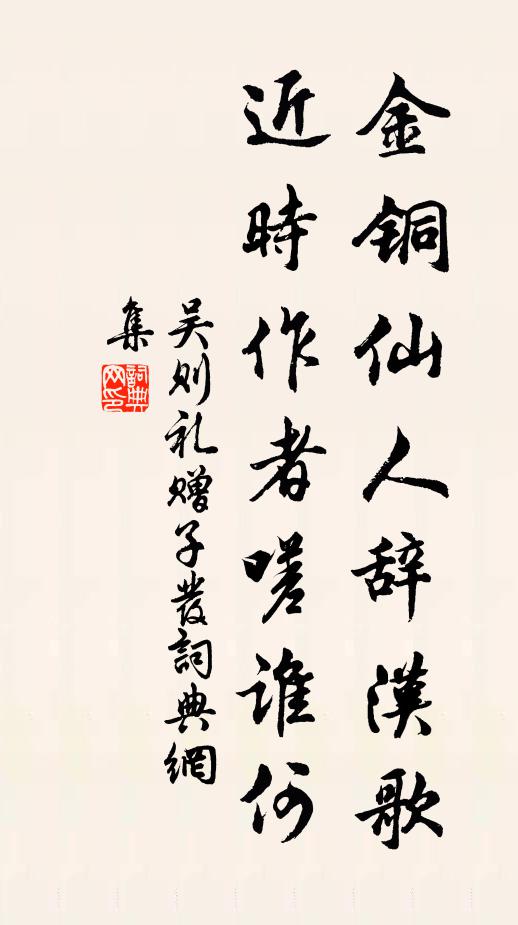 金铜仙人辞漢歌
近時作者嗟谁何
吴则礼赠子發詞典網
集
詞典网印